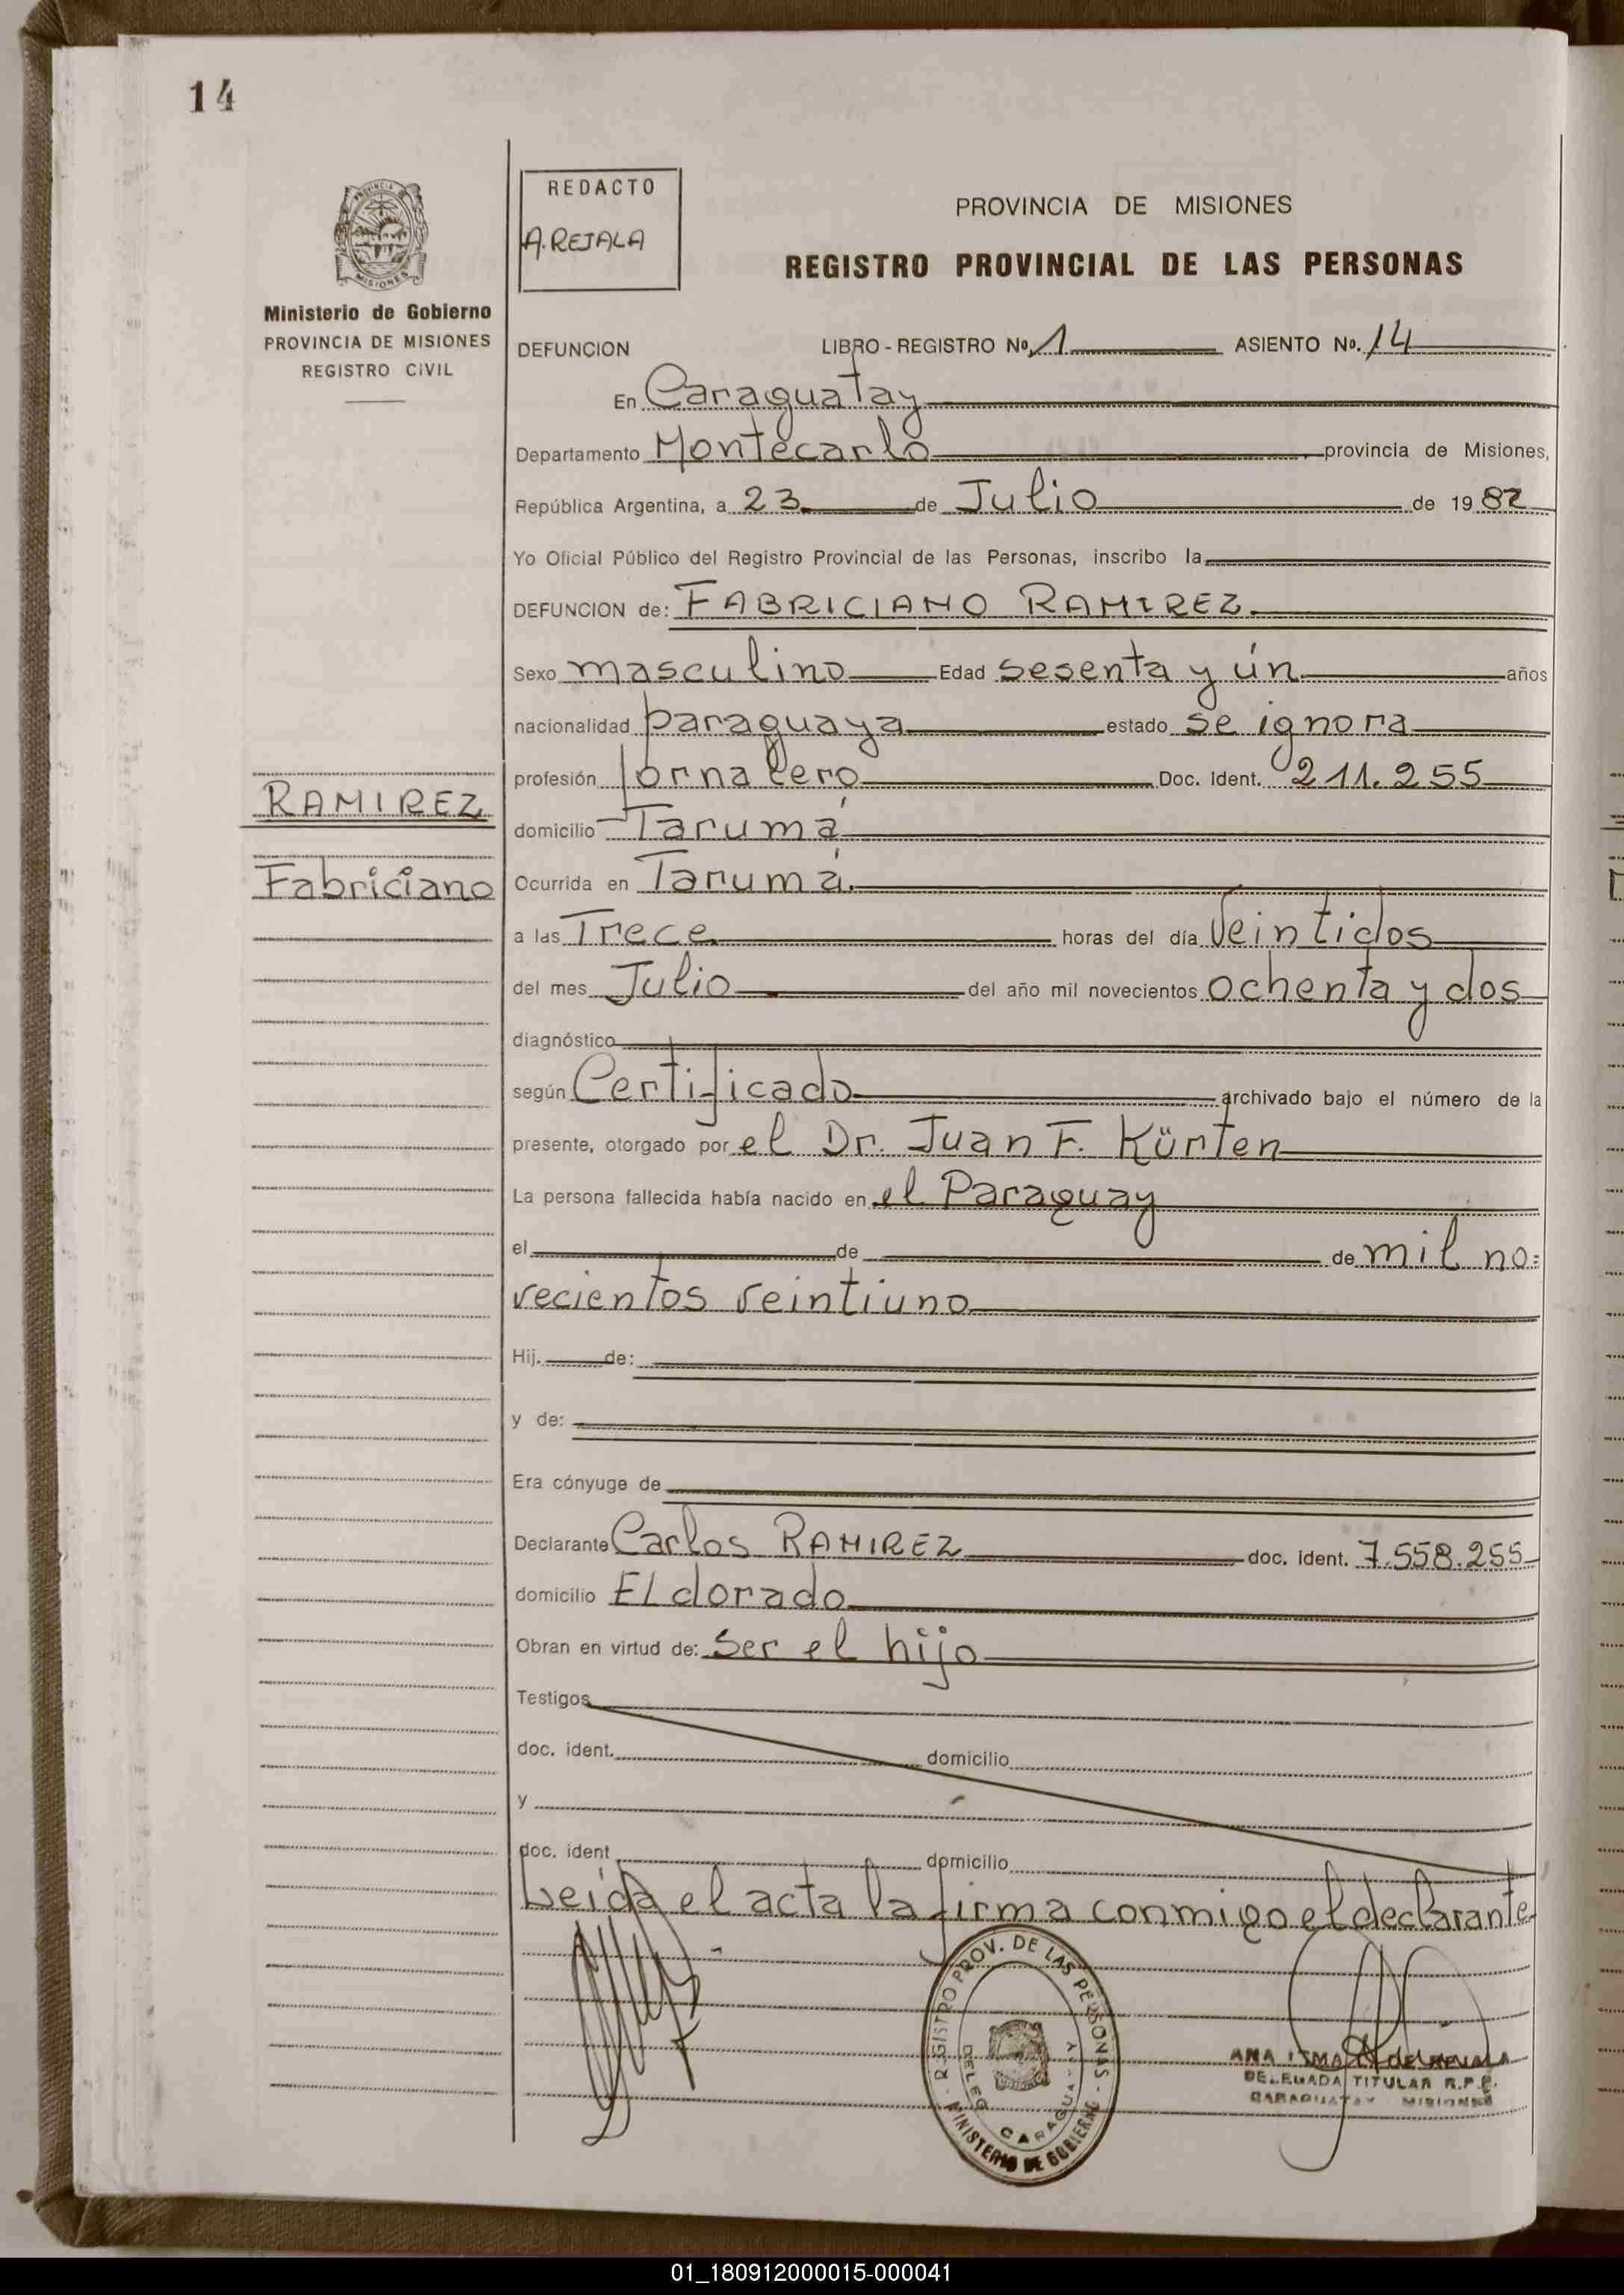 14
PROVINCIA
MISIONES
Ministerio de Gobierno
PROVINCIA DE MISIONES
REGISTRO CIVIL
RAMIREZ
Fabriciano
REDACTO
A. REJALA
PROVINCIA DE MISIONES
REGISTRO PROVINCIAL DE LAS PERSONAS
DEFUNCION LIBRO - REGISTRO Nº 1 ASIENTO Nº. 14
En Caraguatay
Departamento Montecarlo, provincia de Misiones,
República Argentina, a 23 de Julio de 1982
Yo Oficial Público del Registro Provincial de las Personas, inscribo la
DEFUNCION de: FABRICIANO RAMIREZ.
Sexo masculino Edad sesenta y ún años
nacionalidad paraguaya estado se ignora
profesión Jornalero Doc. Ident. 211.255
domicilio Tarumá
Ocurrida en Tarumá.
a las Trece horas del día Veintidos
del mes Julio del año mil novecientos ochenta y dos
diagnóstico
según Certificado archivado bajo el número de la
presente, otorgado por el Dr. Juan F. Kürten
La persona fallecida había nacido en el Paraguay
el de de mil no=
vecientos veintiuno
Hij. de:
y de:
Era cónyuge de
Declarante Carlos RAMIREZ doc. ident. 7.558.255
domicilio Eldorado
Obran en virtud de: Ser el hijo
Testigos
doc. ident. domicilio
y
doc. ident domicilio
Leída el acta la firma conmigo el declarante
REGISTRO PROV. DE LAS PERSONAS - MINISTERIO DE GOBIERNO -
DELEG. CARAGUATAY
ANA
DELEGADA TITULAR R.P.P.
CARAGUATAY MISIONES
01_180912000015-000041